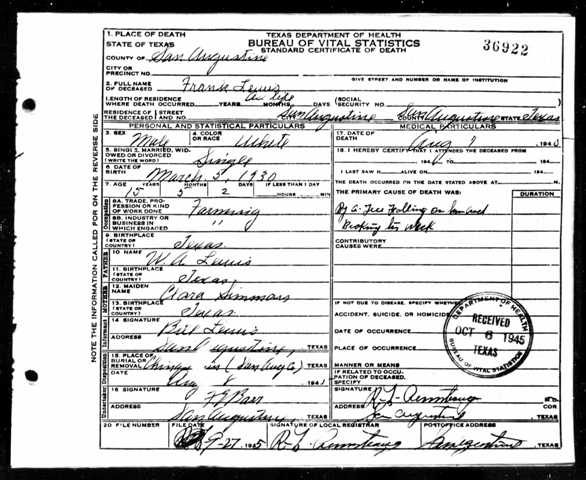 1. PLACE OF DEATH
STATE OF TEXAS
TEXAS DEPARTMENT OF HEALTH
BUREAU OF VITAL STATISTICS
STANDARD CERTIFICATE OF DEATH
36922
COUNTY OF San Augustine
CITY OR PRECINCT NO.
GIVE STREET AND NUMBER OR NAME OF INSTITUTION
2. FULL NAME OF DECEASED Frank Lewis
LENGTH OF RESIDENCE WHERE DEATH OCCURRED YEARS MONTHS DAYS (SOCIAL SECURITY NO. )
RESIDENCE OF THE DECEASED STREET AND NO. San Augustine San Augustine STATE Texas
PERSONAL AND STATISTICAL PARTICULARS
MEDICAL PARTICULARS
3. SEX Male
4. COLOR OR RACE White
17. DATE OF DEATH Aug 194
5. SINGLE, MARRIED, WIDOWED OR DIVORCED (WRITE THE WORD) Single
18. I HEREBY CERTIFY THAT I ATTENDED THE DECEASED FROM
194 TO 194
6. DATE OF BIRTH March 5, 1930
I LAST SAW H ALIVE ON 194
7. AGE 15 YEARS 5 MONTHS 2 DAYS IF LESS THAN 1 DAY HOURS MIN
THE DEATH OCCURRED ON THE DATE STATED ABOVE AT M.
THE PRIMARY CAUSE OF DEATH WAS: DURATION
8A. TRADE, PROFESSION OR KIND OF WORK DONE Farming
8B. INDUSTRY OR BUSINESS IN WHICH ENGAGED "
By a Tree Falling on him and
Breaking his Neck
CONTRIBUTORY CAUSES WERE:
9. BIRTHPLACE (STATE OR COUNTRY) Texas
10. NAME W. A. Lewis
11. BIRTHPLACE (STATE OR COUNTRY) Texas
12. MAIDEN NAME Clara Simmons
13. BIRTHPLACE (STATE OR COUNTRY) Texas
IF NOT DUE TO DISEASE, SPECIFY WHETHER
ACCIDENT, SUICIDE, OR HOMICIDE
14. SIGNATURE Bill Lewis
DATE OF OCCURRENCE
ADDRESS San Augustine, TEXAS
PLACE OF OCCURRENCE
15. PLACE OF BURIAL OR REMOVAL (San Aug Co)
MANNER OR MEANS
IF RELATED TO OCCUPATION OF DECEASED, SPECIFY
DATE Aug 8 194
16. SIGNATURE
SIGNATURE M.D. COR.
ADDRESS San Augustine, TEXAS
San Augustine TEXAS
20. FILE NUMBER
FILE DATE 9-27 1945
SIGNATURE OF LOCAL REGISTRAR
POSTOFFICE ADDRESS San Augustine, TEXAS
DEPARTMENT OF HEALTH
RECEIVED
OCT 6 1945
TEXAS
BUREAU OF VITAL STATISTICS
NOTE THE INFORMATION CALLED FOR ON THE REVERSE SIDE
Occupation
FATHER
MOTHER
Informant
Undertaker Disposition